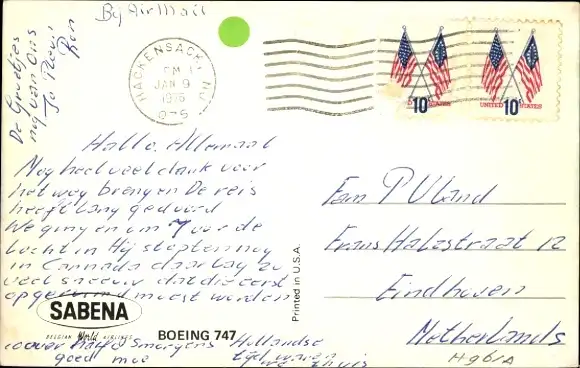 By Air Mail
De Groetjes
nog van Ons
Jo Plevn
Ron
HACKENSACK, NJ
PM
JAN 9
1976
076
10c
UNITED STATES
10c
UNITED STATES
Hallo. Allemaal
Nog heel veel dank voor
het weg brengen De reis
heeft lang geduurd
We gingen om 7 uur de
lucht in Hij stopten nog
in Cannada daar lag zo
veel sneeuw dat die eerst
opgeruimd moest worden
SABENA
BELGIAN World AIRLINES
BOEING 747
Printed in U.S.A.
half smorgens Hollandse
tijd waren
we thuis
goed moe
Fam P Uland
Frans Halsstraat 12
Eindhoven
Netherlands
H961A